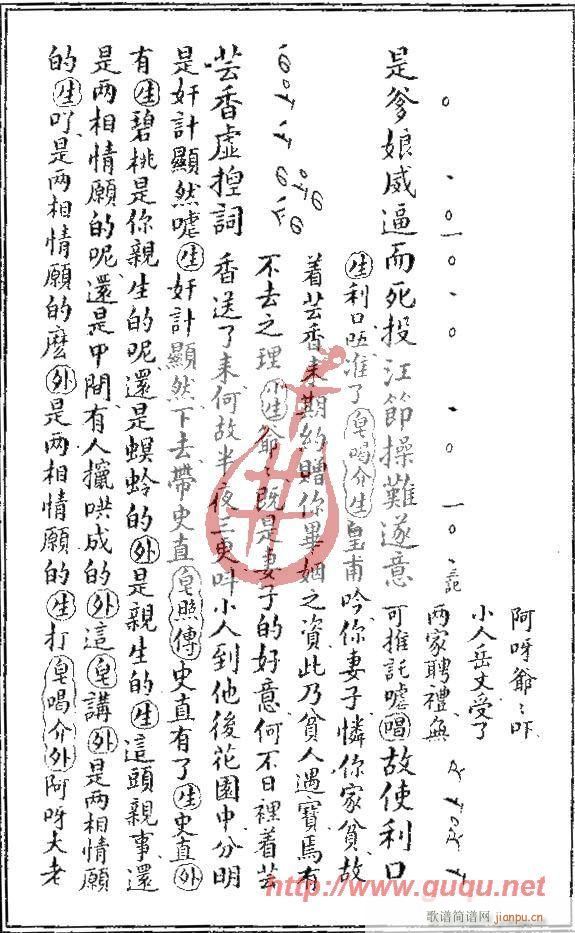 阿呀爺〻吓
小人岳丈受了
两家聘禮無
是爹娘威逼而死投江節操難遂意可推託嘘唱故使利口
生利口既准了皂喝介生皇甫吟你妻子憐你家貧故
着芸香来期約贈你畢姻之資此乃貧人遇寶焉有
不去之理小生爺〻既是妻子的好意何不日裡着芸
芸香虚揑詞香送了来何故半夜三更叫小人到他後花園中分明
是奸計顯然嘘生奸計顯然下去帶史直皂照傳史直有了生史直外
有生碧桃是你親生的呢還是螟蛉的外是親生的生這頭親事還
是两相情願的呢還是中間有人攛哄成的外這皂講外是两相情願
的生吖是两相情願的麽外是两相情願的生打皂喝介外阿呀大老
http://www.guqu.net
歌谱简谱网
jianpu.cn